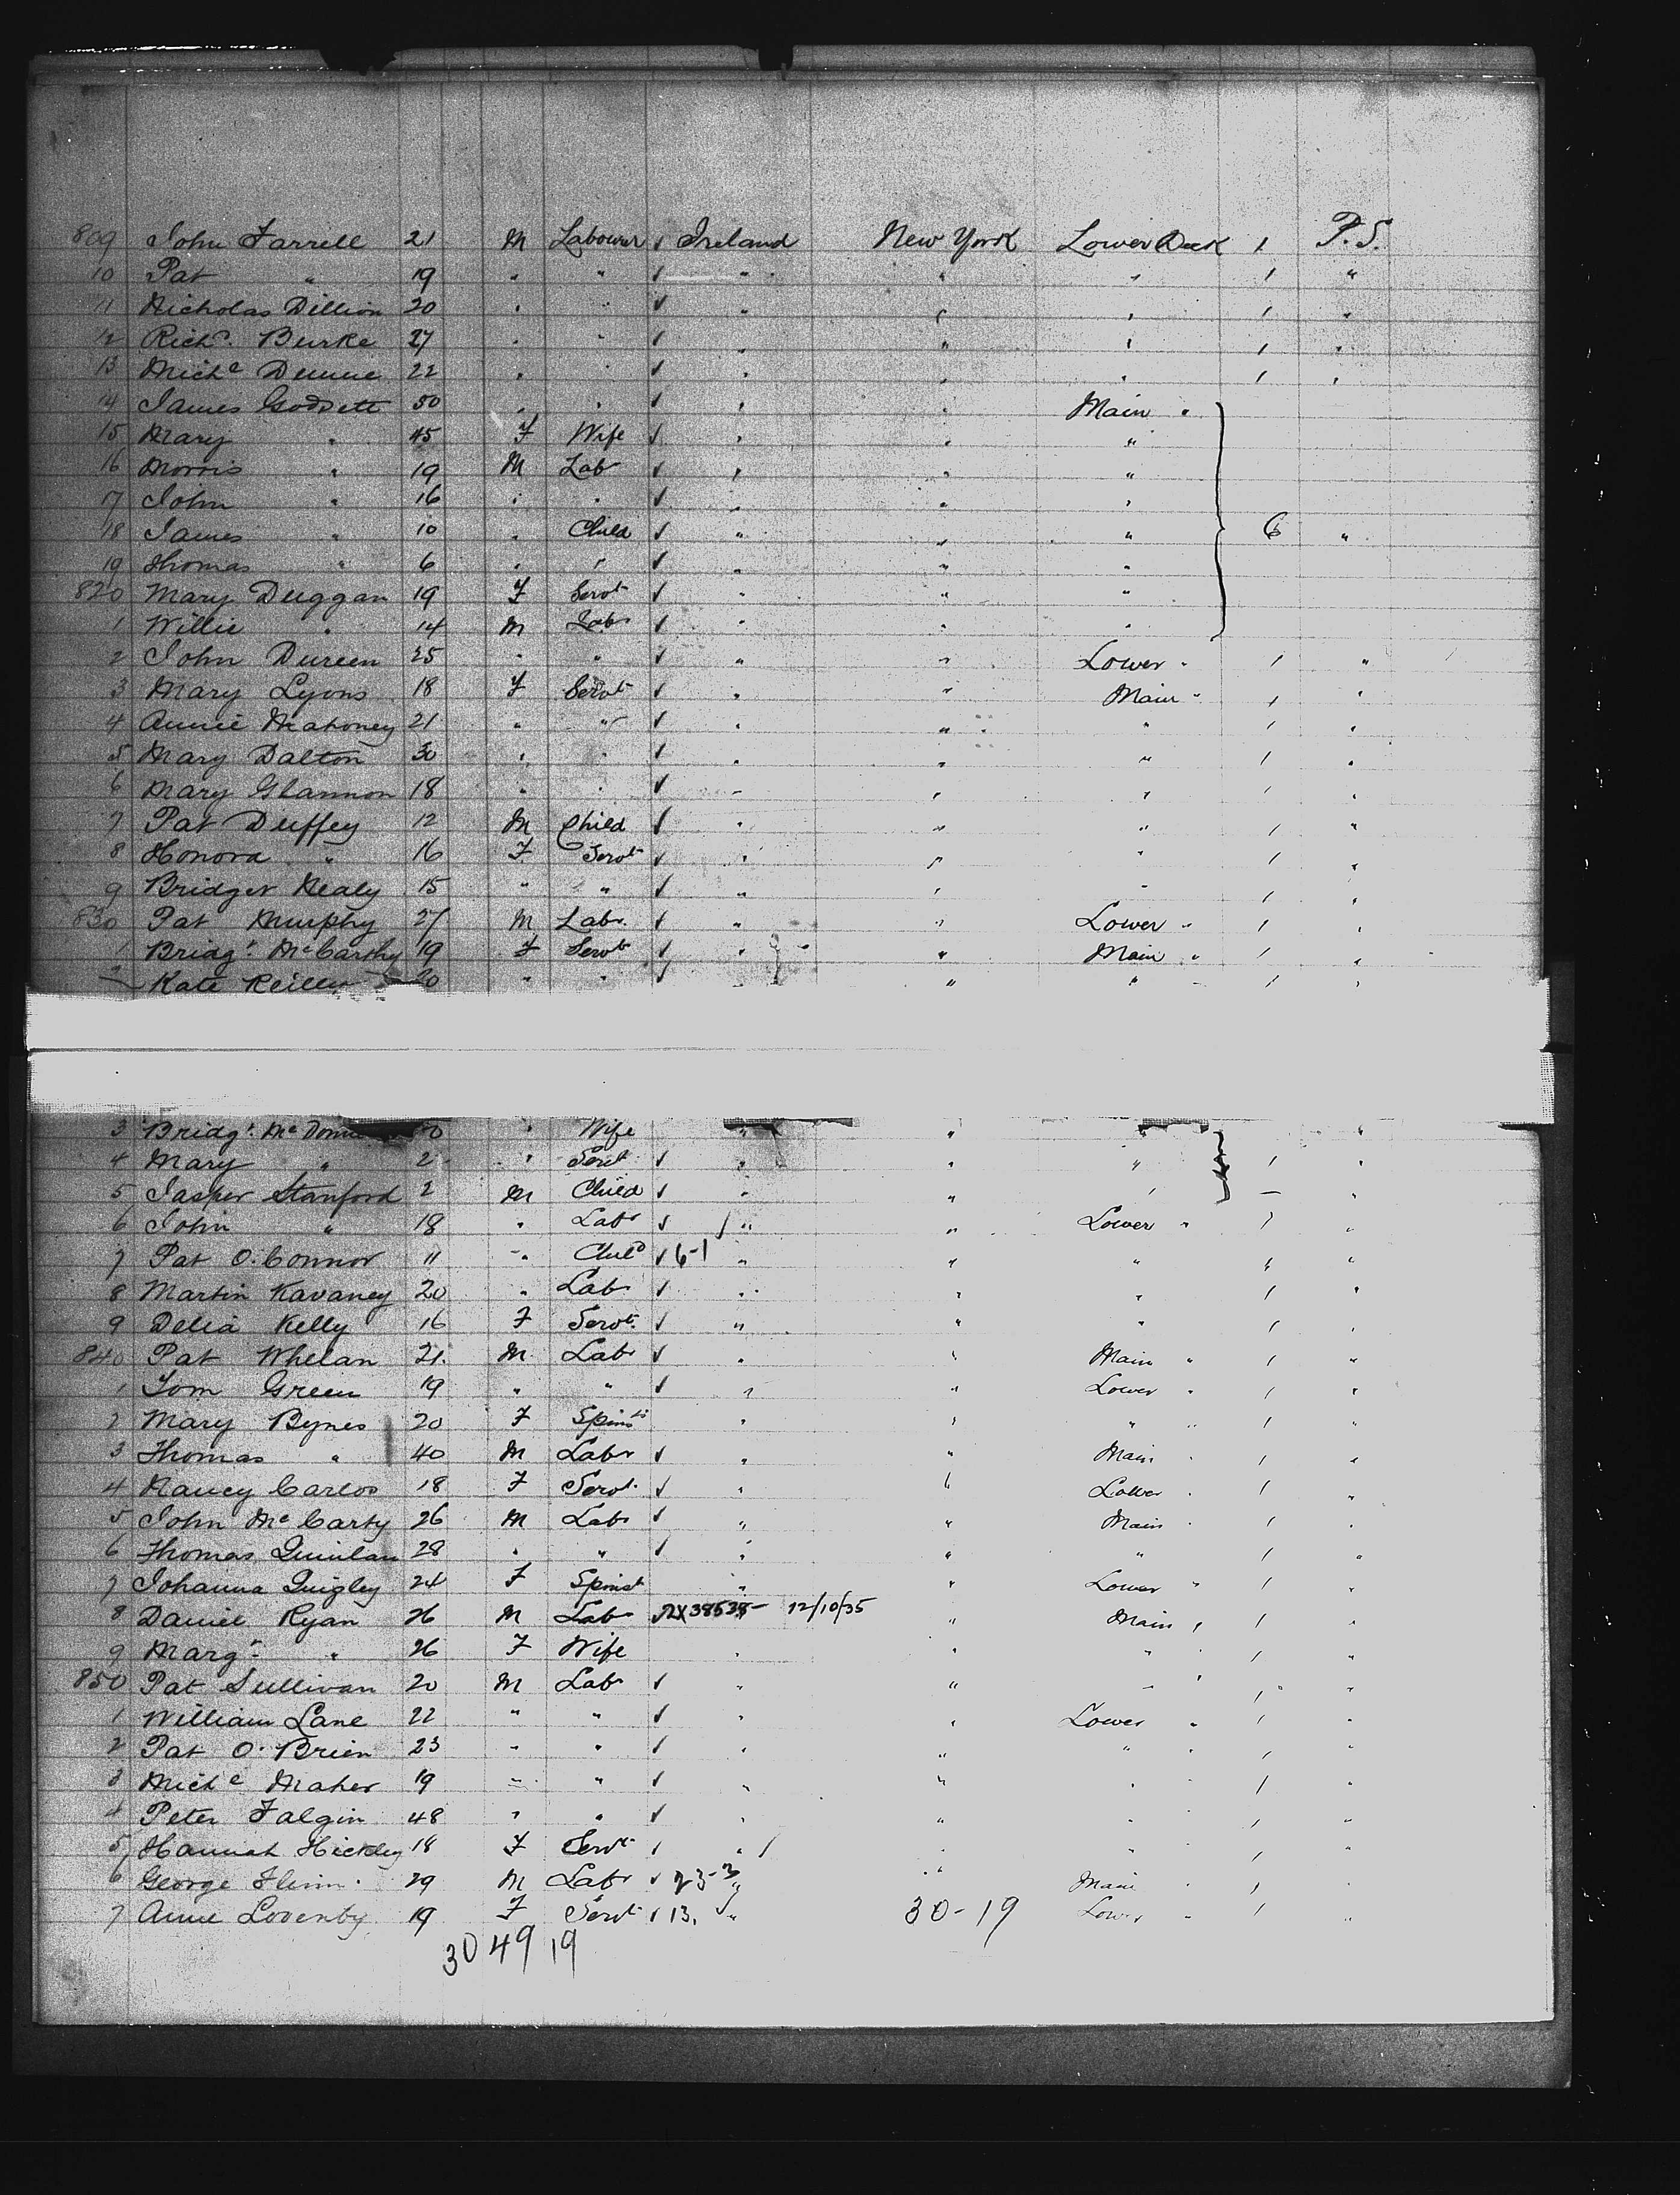 809 John Farrell 21 M Labourer ✓ Ireland New York Lower Deck 1 P.S.
10 Pat " 19 " " ✓ " " " 1 "
11 Nicholas Dillion 20 " " ✓ " " " 1 "
12 Richd. Burke 27 " " ✓ " " " 1 "
13 Michl Dunne 22 " " ✓ " " " 1 "
14 James 50 " " ✓ " " Main "
15 Mary " 45 F Wife ✓ " " "
16 Morris " 19 M Lab ✓ " " "
17 John " 16 " " ✓ " " "
18 James " 10 " Child ✓ " " " 6 "
19 Thomas " 6 " " ✓ " " "
820 Mary Duggan 19 F Servt ✓ " " "
1 Willie " 14 M Labr ✓ " " "
2 John Dureen 25 " " ✓ " " Lower " 1 "
3 Mary Lyons 18 F Servt ✓ " " Main " 1 "
4 Annie Mahoney 21 " " ✓ " " " 1 "
5 Mary Dalton 30 " " ✓ " " " 1 "
6 Mary Glannon 18 " " ✓ " " " 1 "
7 Pat Duffey 12 M Child ✓ " " " 1 "
8 Honora " 16 F Servt ✓ " " " 1 "
9 Bridget Healy 15 " " ✓ " " " 1 "
830 Pat Murphy 27 M Labr. ✓ " " Lower " 1 "
1 Bridgt. McCarthy 19 F Servt ✓ " " Main " 1 "
2 Kate Reilly 20 " " ✓ " " 1 "
3 Bridgt. Mc " Wife " " " "
4 Mary " 2 " Servt ✓ " " " 1 "
5 Jasper Stanford 2 M Child ✓ " " " — "
6 John " 18 " Labr ✓ " " Lower " 1 "
7 Pat O'Connor 11 " Child ✓ 6-1 " " " " "
8 Martin Kavaney 20 " Lab ✓ " " " 1 "
9 Delia Kelly 16 F Servt. ✓ " " " 1 "
840 Pat Whelan 21. M Labr ✓ " " Main " 1 "
1 Tom Green 19 " " ✓ " " Lower " 1 "
2 Mary Bynes 20 F Spinst " " " " 1 "
3 Thomas " 40 M Labr ✓ " " Main " 1 "
4 Nancy Carlos 18 F Servt. ✓ " " Lower " 1 "
5 John McCarty 26 M Labr ✓ " " Main " 1 "
6 Thomas Quinlan 28 " " ✓ " " " 1 "
7 Johanna Quigley 24 F Spinst " " Lower " 1 "
8 Daniel Ryan 26 M Lab 12/10/35 " Main " 1 "
9 Margt. " 26 F Wife " " " 1 "
850 Pat Sullivan 20 M Labr ✓ " " " 1 "
1 William Lane 22 " " ✓ " " Lower " 1 "
2 Pat O'Brien 23 " " ✓ " " " " 1 "
3 Michl Maher 19 " " ✓ " " " " 1 "
4 Peter Falgin 48 " " ✓ " " " 1 "
5 Hannah Hickley 18 F Servt " " " 1 "
6 George Flinn 29 M Labr ✓ 23-3 " " Main " 1 "
7 Anne Lovenby 19 F Servt ✓ 13. " 30-19 Lower " 1 "
30 49 19